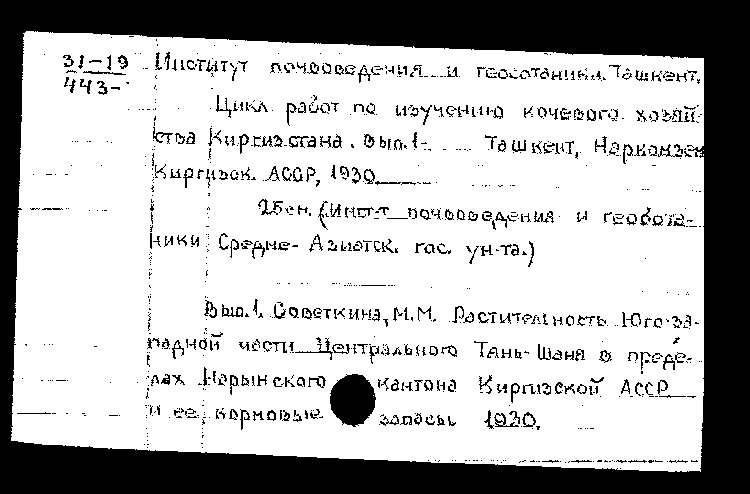 31-19
443-
Институт почвоведения и геоботаники. Ташкент.
Цикл работ по изучению кочевого хозяй-
ства Киргизстана. Вып.1- Ташкент, Наркомзем
Киргизск. АССР, 1930
25см. (Инст-т почвоведения и геобота-
ники Средне-Азиатск. гос. ун-та.)
Вып.1. Советкина, М.М. Растительность Юго-за-
падной части Центрального Тянь-Шаня в преде-
лах Нарынского кантона Киргизской АССР
и ее кормовые запасы 1930.